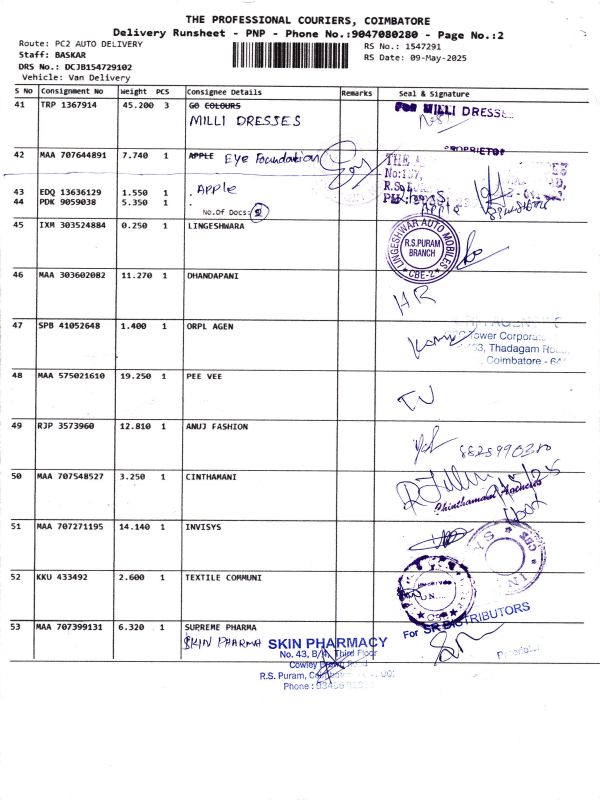 THE PROFESSIONAL COURIERS, COIMBATORE
Delivery Runsheet - PNP - Phone No.:9047080280 - Page No.:2
Route: PC2 AUTO DELIVERY
RS No.: 1547291
Staff: BASKAR
RS Date: 09-May-2025
DRS No.: DCJB154729102
Vehicle: Van Delivery
S No Consignment No Weight PCS Consignee Details Remarks Seal & Signature
41 TRP 1367914 45.200 3 GO COLOURS
MILLI DRESSES
FOR MILLI DRESSES
PROPRIETOR
42 MAA 707644891 7.740 1 APPLE Eye Foundation
THE
No:137,
R.S.
43 EDQ 13636129 1.550 1 . Apple
44 PDK 9059038 5.350 1 .
Apple
No.Of Docs: 2
45 IXM 303524884 0.250 1 LINGESHWARA
LINGESHWAR AUTO MOBILES
R.S.PURAM
BRANCH
CBE-2
46 MAA 303602082 11.270 1 DHANDAPANI
HR
47 SPB 41052648 1.400 1 ORPL AGEN
Tower Corporat
Thadagam Ro
Coimbatore - 64
48 MAA 575021610 19.250 1 PEE VEE
49 RJP 3573960 12.810 1 ANUJ FASHION
50 MAA 707548527 3.250 1 CINTHAMANI
Chinthamani Agencies
51 MAA 707271195 14.140 1 INVISYS
52 KKU 433492 2.600 1 TEXTILE COMMUNI
For SR DISTRIBUTORS
53 MAA 707399131 6.320 1 SUPREME PHARMA
SKIN PHARMA
SKIN PHARMACY
No. 43, B/4, Third Floor
Cowley Brown Road
R.S. Puram,
Phone :